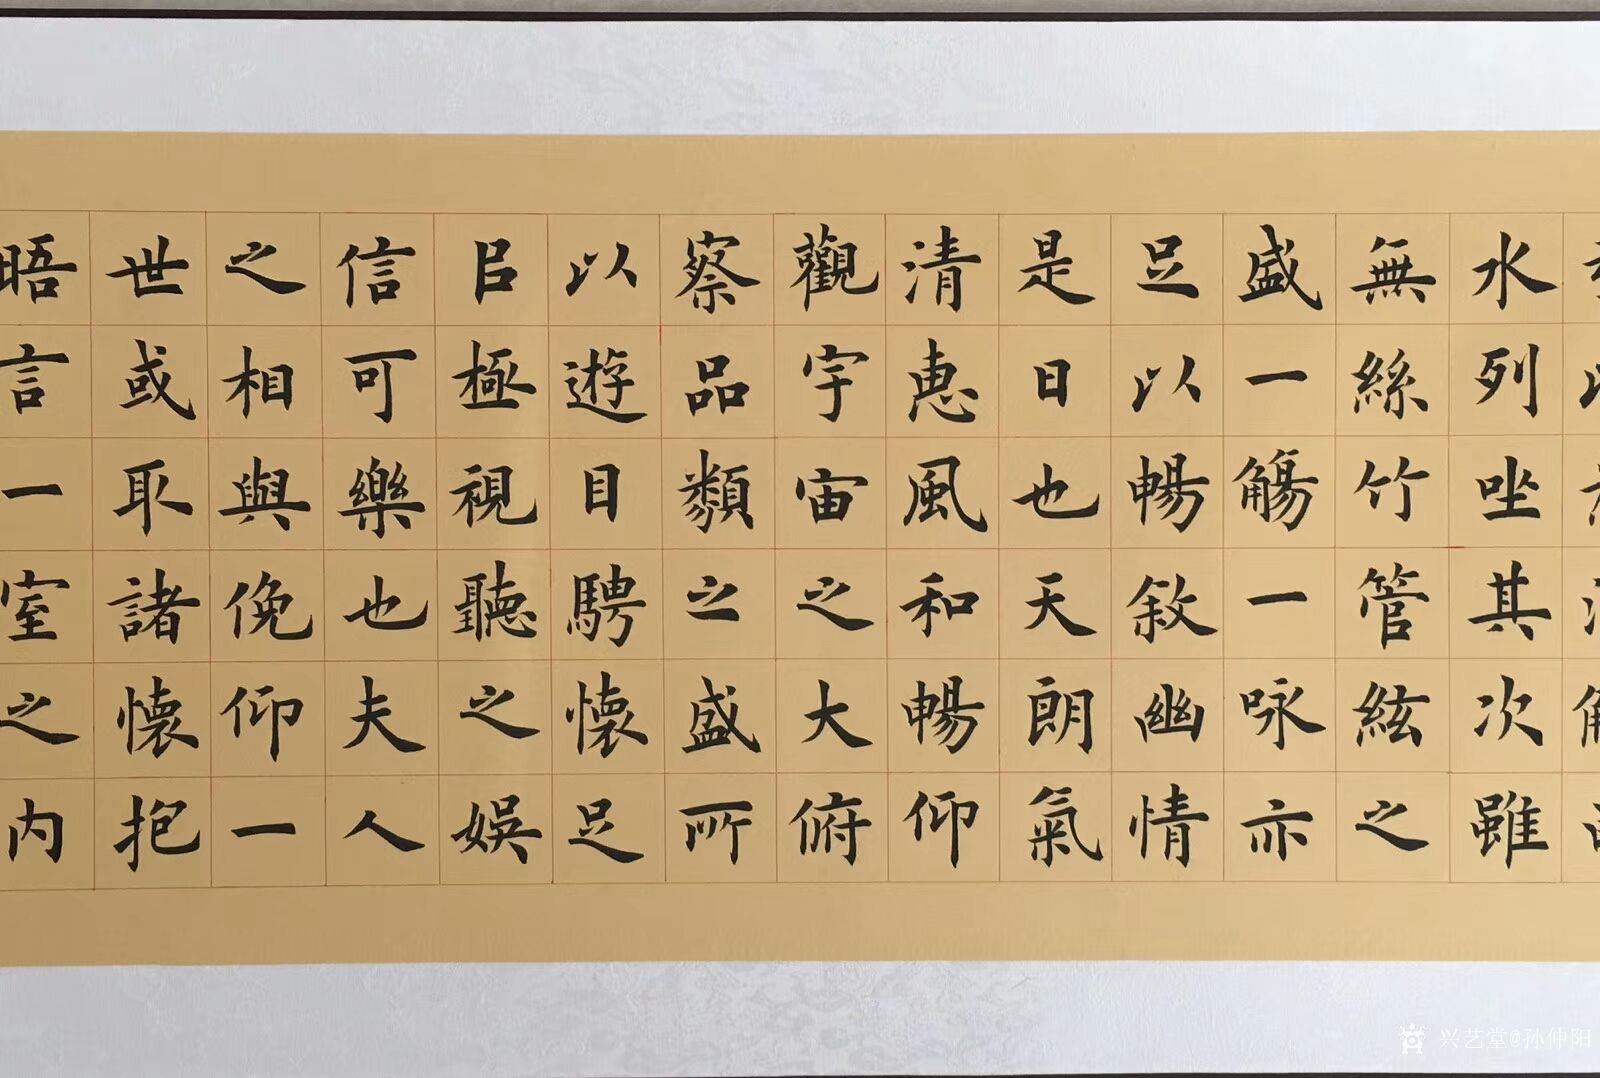 水列坐其次雖
無絲竹管絃之
盛一觴一咏亦
足以暢敘幽情
是日也天朗氣
清惠風和暢仰
觀宇宙之大俯
察品類之盛所
以遊目騁懷足
㠯極視聽之娛
信可樂也夫人
之相與俛仰一
世或取諸懷抱
晤言一室之内
兴艺堂@孙仲阳